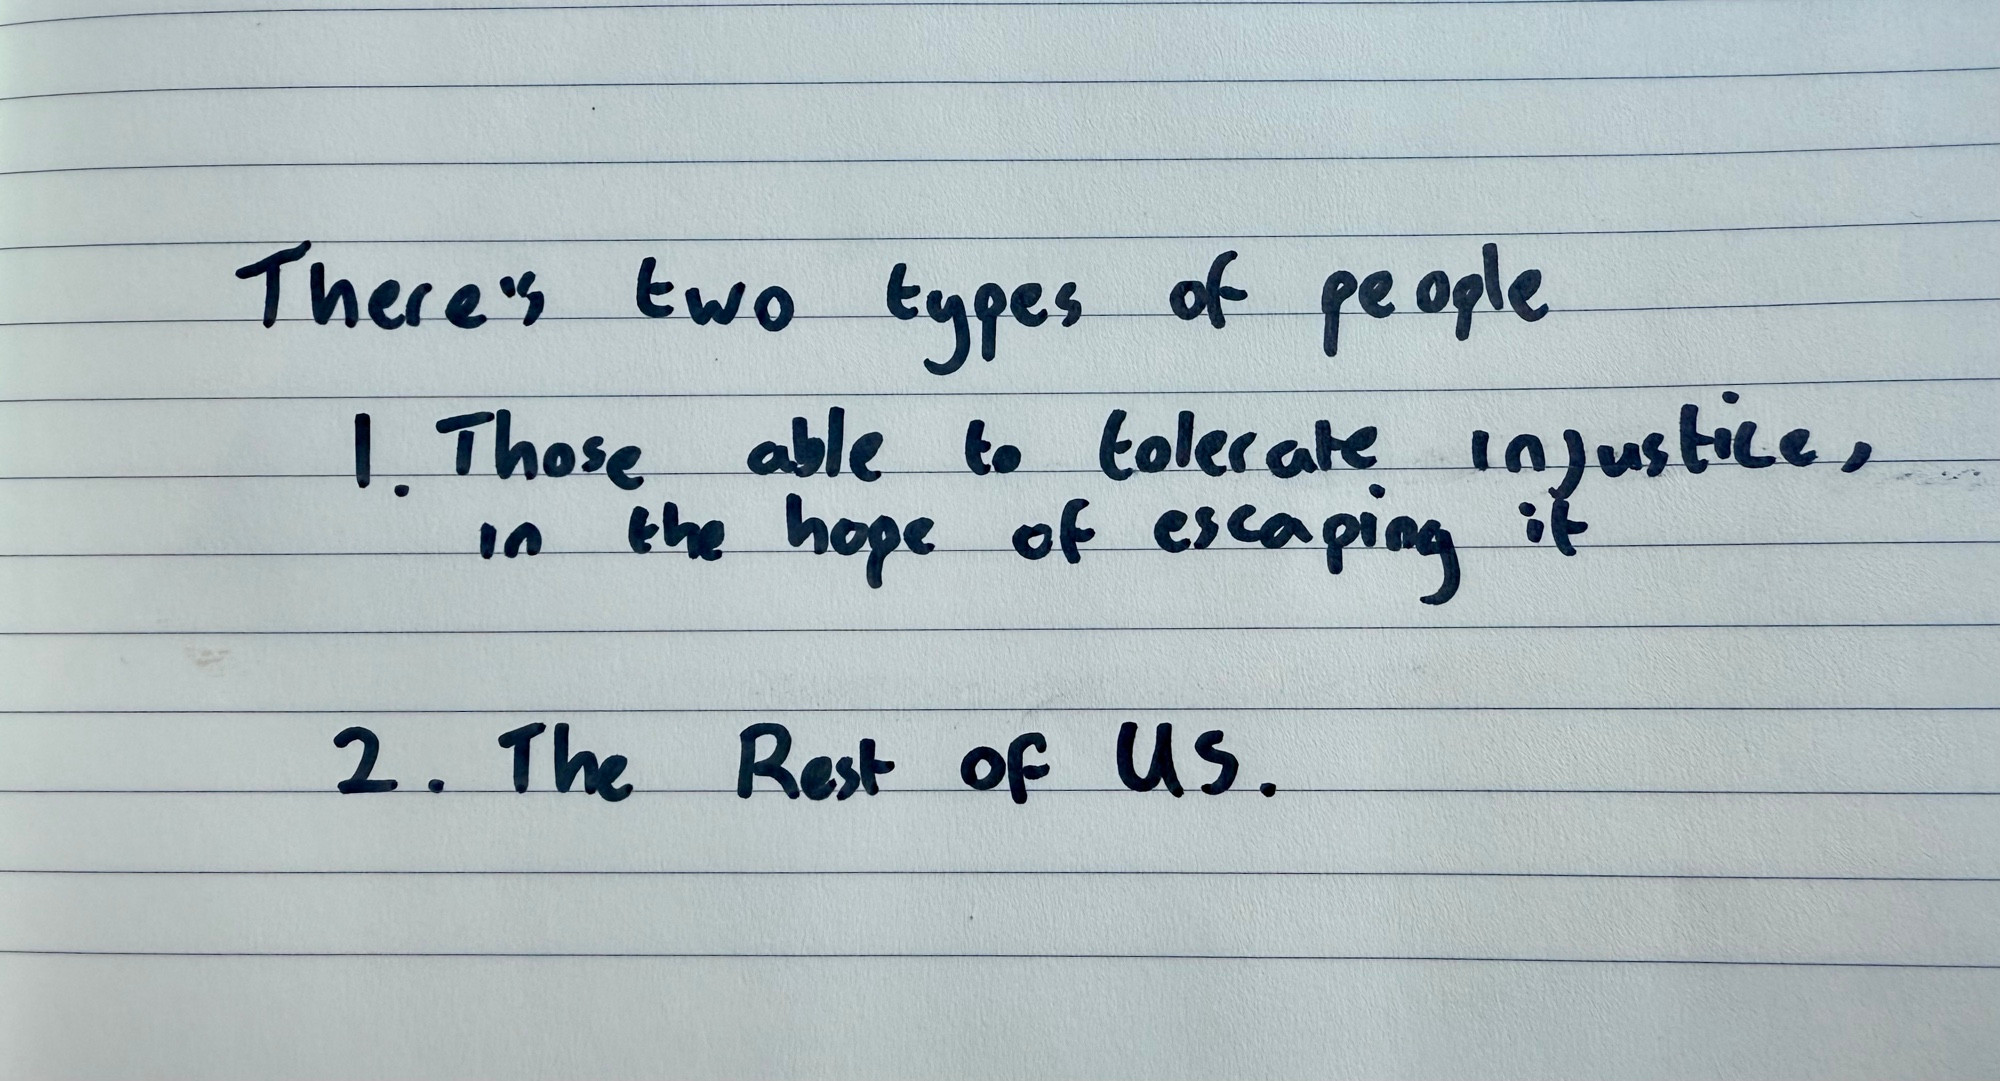 There's two types of people
1. Those able to tolerate injustice,
in the hope of escaping it
2. The Rest of US.